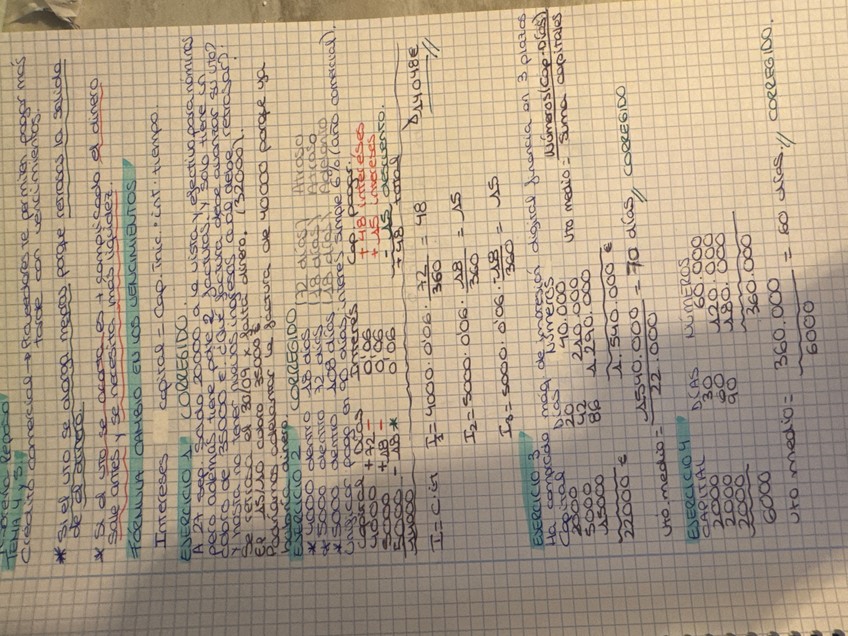 Repaso
TEMA 4 y 5.
Crédito comercial → Proveedores te permiten pagar más
tarde con vencimientos.
* Si el vto se alarga mejor porque retrasas la salida
de el dinero.
* Si el vto se acorta es + complicado el dinero
sale antes y se necesita más liquidez.
FÓRMULA CAMBIO EN LOS VENCIMIENTOS
Intereses capital = Cap. Inic · int · tiempo.
EJERCICIO 1. CORREGIDO.
A 27 sep. saldo 20000 a la vista y efectivo para nóminas
pero además tiene para 2 facturas y solo tiene un
cobro de 35000 € ¿Qué factura debe avanzar su vto?
y hasta no tener nuevos ingresos
Se retrasa el 30/09 x falta dinero. (32000).
El 15/10 cobro 35000 €
Podríamos adelantar la factura de 40000 porque ya
dinero.
EJERCICIO 2 CORREGIDO
* 4000 dentro 18 días (72 días) Atraso
* 5000 dentro 72 días (18 días) Atraso
* 5000 dentro 108 días (18 días) Adelanto
Unificar pago en 90 días, interés simple 6% (año comercial).
Capital Días Interés Cap. pagar.
4000 + 72 - 0'06 + 48 intereses
5000 + 18 - 0'06 + 15 intereses
5000 - 18 * 0'06 - 15 descuento.
14000 + 48 total 14048€ //
I = C·i·t I1 = 4000 · 0'06 · 72/360 = 48
I2 = 5000 · 0'06 · 18/360 = 15
I3 = 5000 · 0'06 · 18/360 = 15
EJERCICIO 3
Ha comprado máq. de impresión digital financia en 3 plazos
Capital Días Números Vto medio = Números (Cap · Días) / Suma capitales
2000 20 40.000
5000 42 210.000
15000 86 1.290.000
22000 € 1.540.000 €
Vto medio = 1540.000 / 22.000 = 70 días // CORREGIDO
EJERCICIO 4
CAPITAL DÍAS NÚMEROS
2000 30 60.000
2000 60 120.000
2000 90 180.000
6000 360.000
Vto medio = 360.000 / 6000 = 60 días. // CORREGIDO.